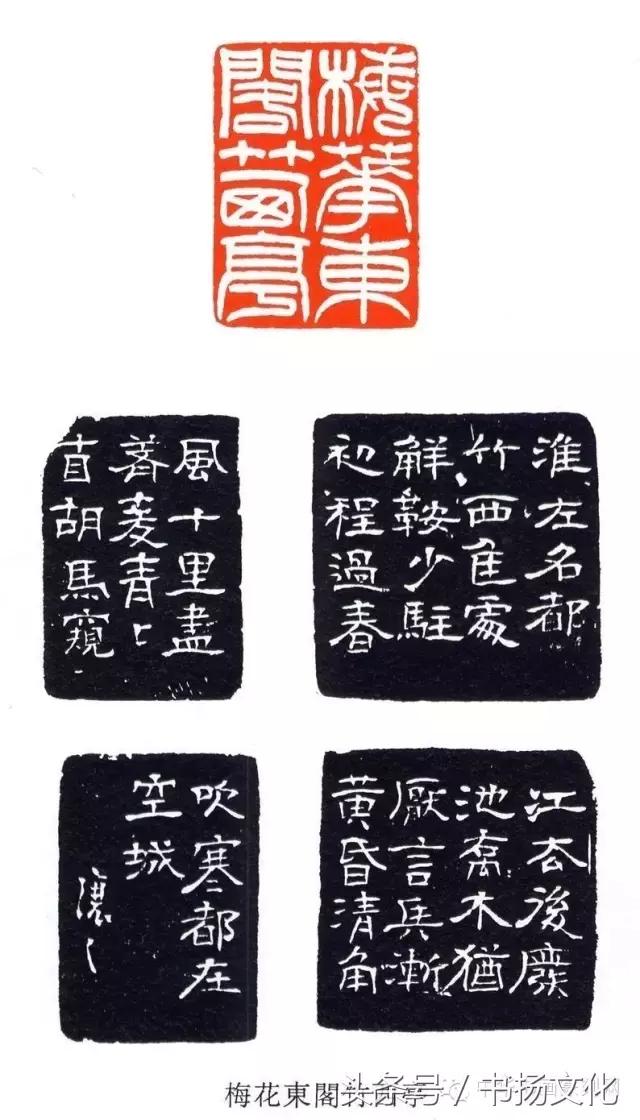 梅華東
閣竹西亭
淮左名都
竹西佳處
解鞍少駐
初程過春
風十里盡
薺麥青〻
自胡馬窺
江去後廢
池喬木猶
厭言兵漸
黃昏清角
吹寒都在
空城
讓之
梅花東閣竹西亭
头条号 / 书扬文化